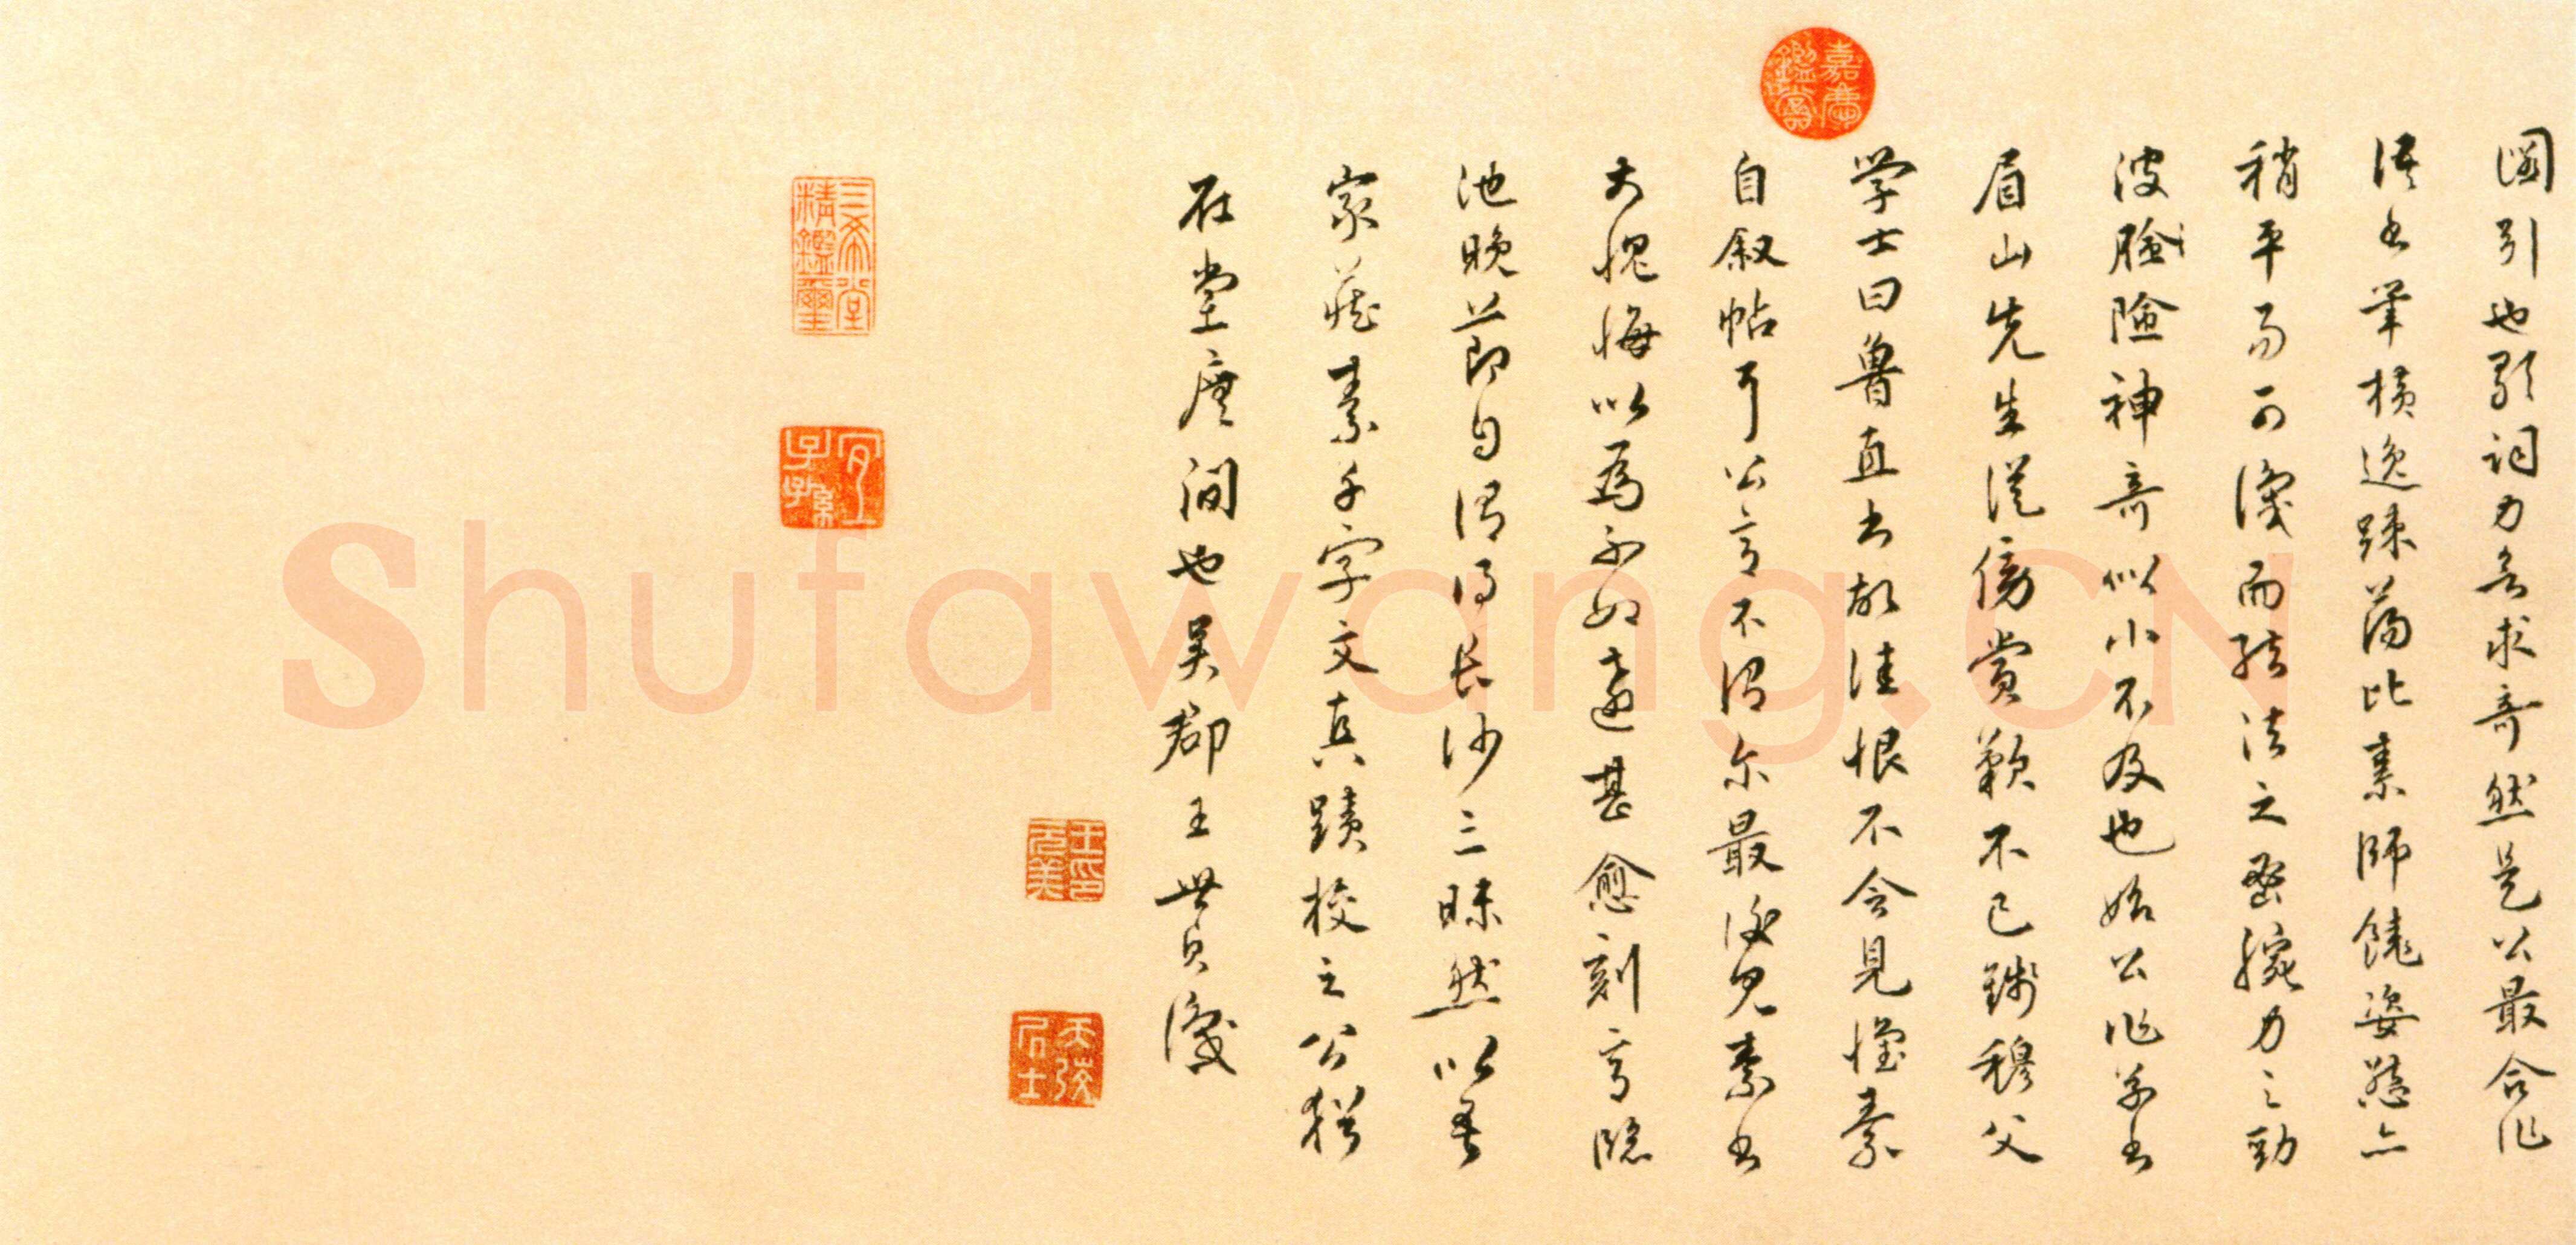 嘉慶鑑賞
圖引也歌詞力求奇然是公最合作
語書筆橫逸疎蕩比素師饒姿態亦
稍平易可識而結法之密腕力之勁
波臉險神奇似小不及也始公作草書
眉山先生從傍賞歎不已錢穆父
學士曰魯直書故佳恨不令見懷素
自叙帖耳公言不謂尔最後見素書
大愧悔以為不如遠甚愈刻意臨
池晚節自謂得長沙三昧然以吾
家藏素千字文真蹟校之公猶
在堂廡間也吳郡王世貞識
王印元美
天弢居士
三希堂精鑑璽
宜子孫
Shufawang.CN